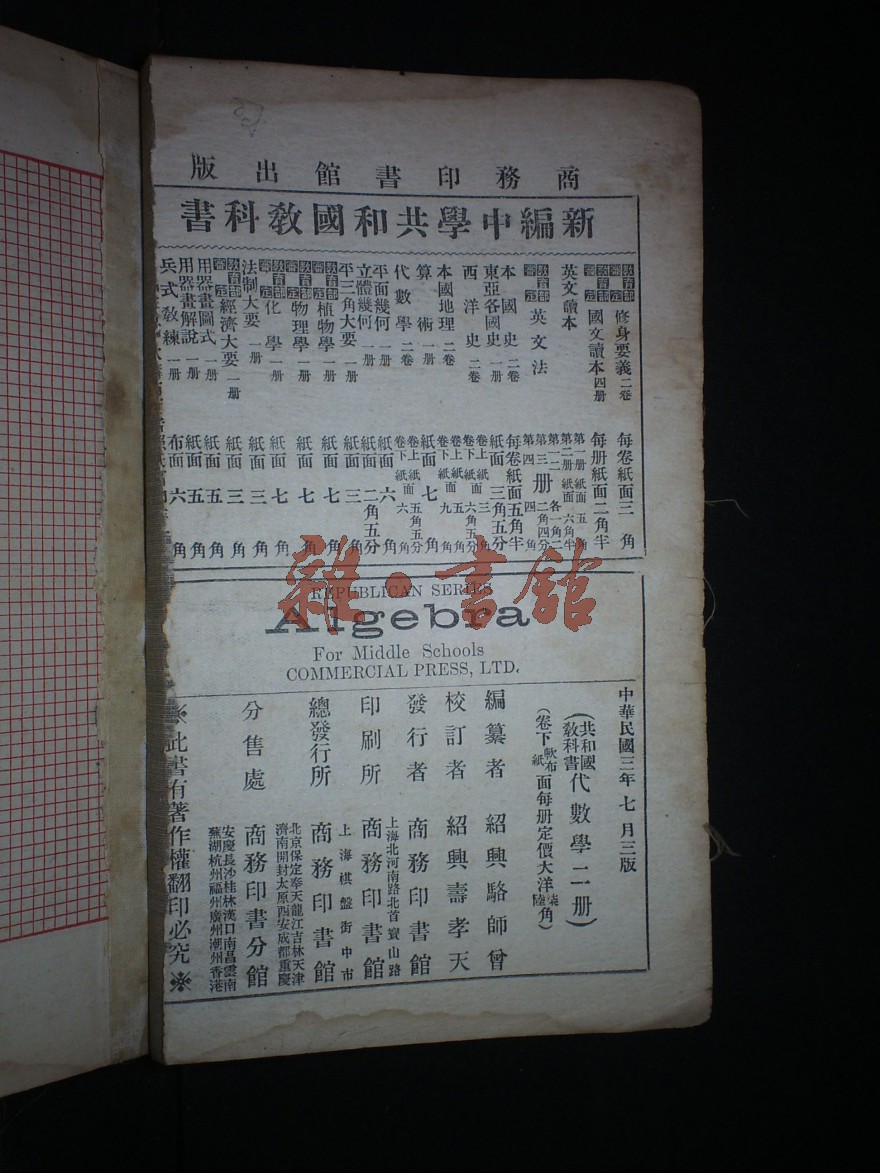 商務印書館出版
新編中學共和國教科書
教育部審定 修身要義 二卷 每卷紙面三角
教育部審定 國文讀本 四册 每册紙面二角半
英文讀本 第一册 紙面 五角 第二册 紙面 六角半
教育部審定 英文法 第一二 各一角二 第三册 二角四分 第四 四角
本國史 二卷 每卷紙面五角半
東亞各國史 一册 紙面 三角五分
西洋史 二卷 卷上 紙面 三角 卷下 紙面 六角五分
本國地理 二卷 卷上 紙面 五角 卷下 紙面 九角
算術 一册 紙面 七角
代數學 二卷 卷上 紙面 五角五分 卷下 紙面 六角
平面幾何 一册 紙面 六角
立體幾何 一册 紙面 二角五分
平三角大要 一册 紙面 三角
教育部審定 植物學 一册 紙面 七角
教育部審定 物理學 一册 紙面 七角
教育部審定 化學 一册 紙面 七角
法制大要 一册 紙面 三角
教育部審定 經濟大要 一册 紙面 三角
用器畫圖式 一册 紙面 五角
用器畫解說 一册 紙面 五角
兵式教練 一册 布面 六角
REPUBLICAN SERIES
Algebra
For Middle Schools
COMMERCIAL PRESS, LTD.
中華民國三年七月三版
(共和國教科書代數學二册)
(卷下軟布紙面每册定價大洋柒陸角)
編纂者 紹興駱師曾
校訂者 紹興壽孝天
發行者 商務印書館
上海北河南路北首寶山路
印刷所 商務印書館
上海棋盤街中市
總發行所 商務印書館
北京保定奉天龍江吉林天津
濟南開封太原西安成都重慶
分售處 商務印書分館
安慶長沙桂林漢口南昌雲南
蕪湖杭州福州廣州潮州香港
※此書有著作權翻印必究※
雜·書館